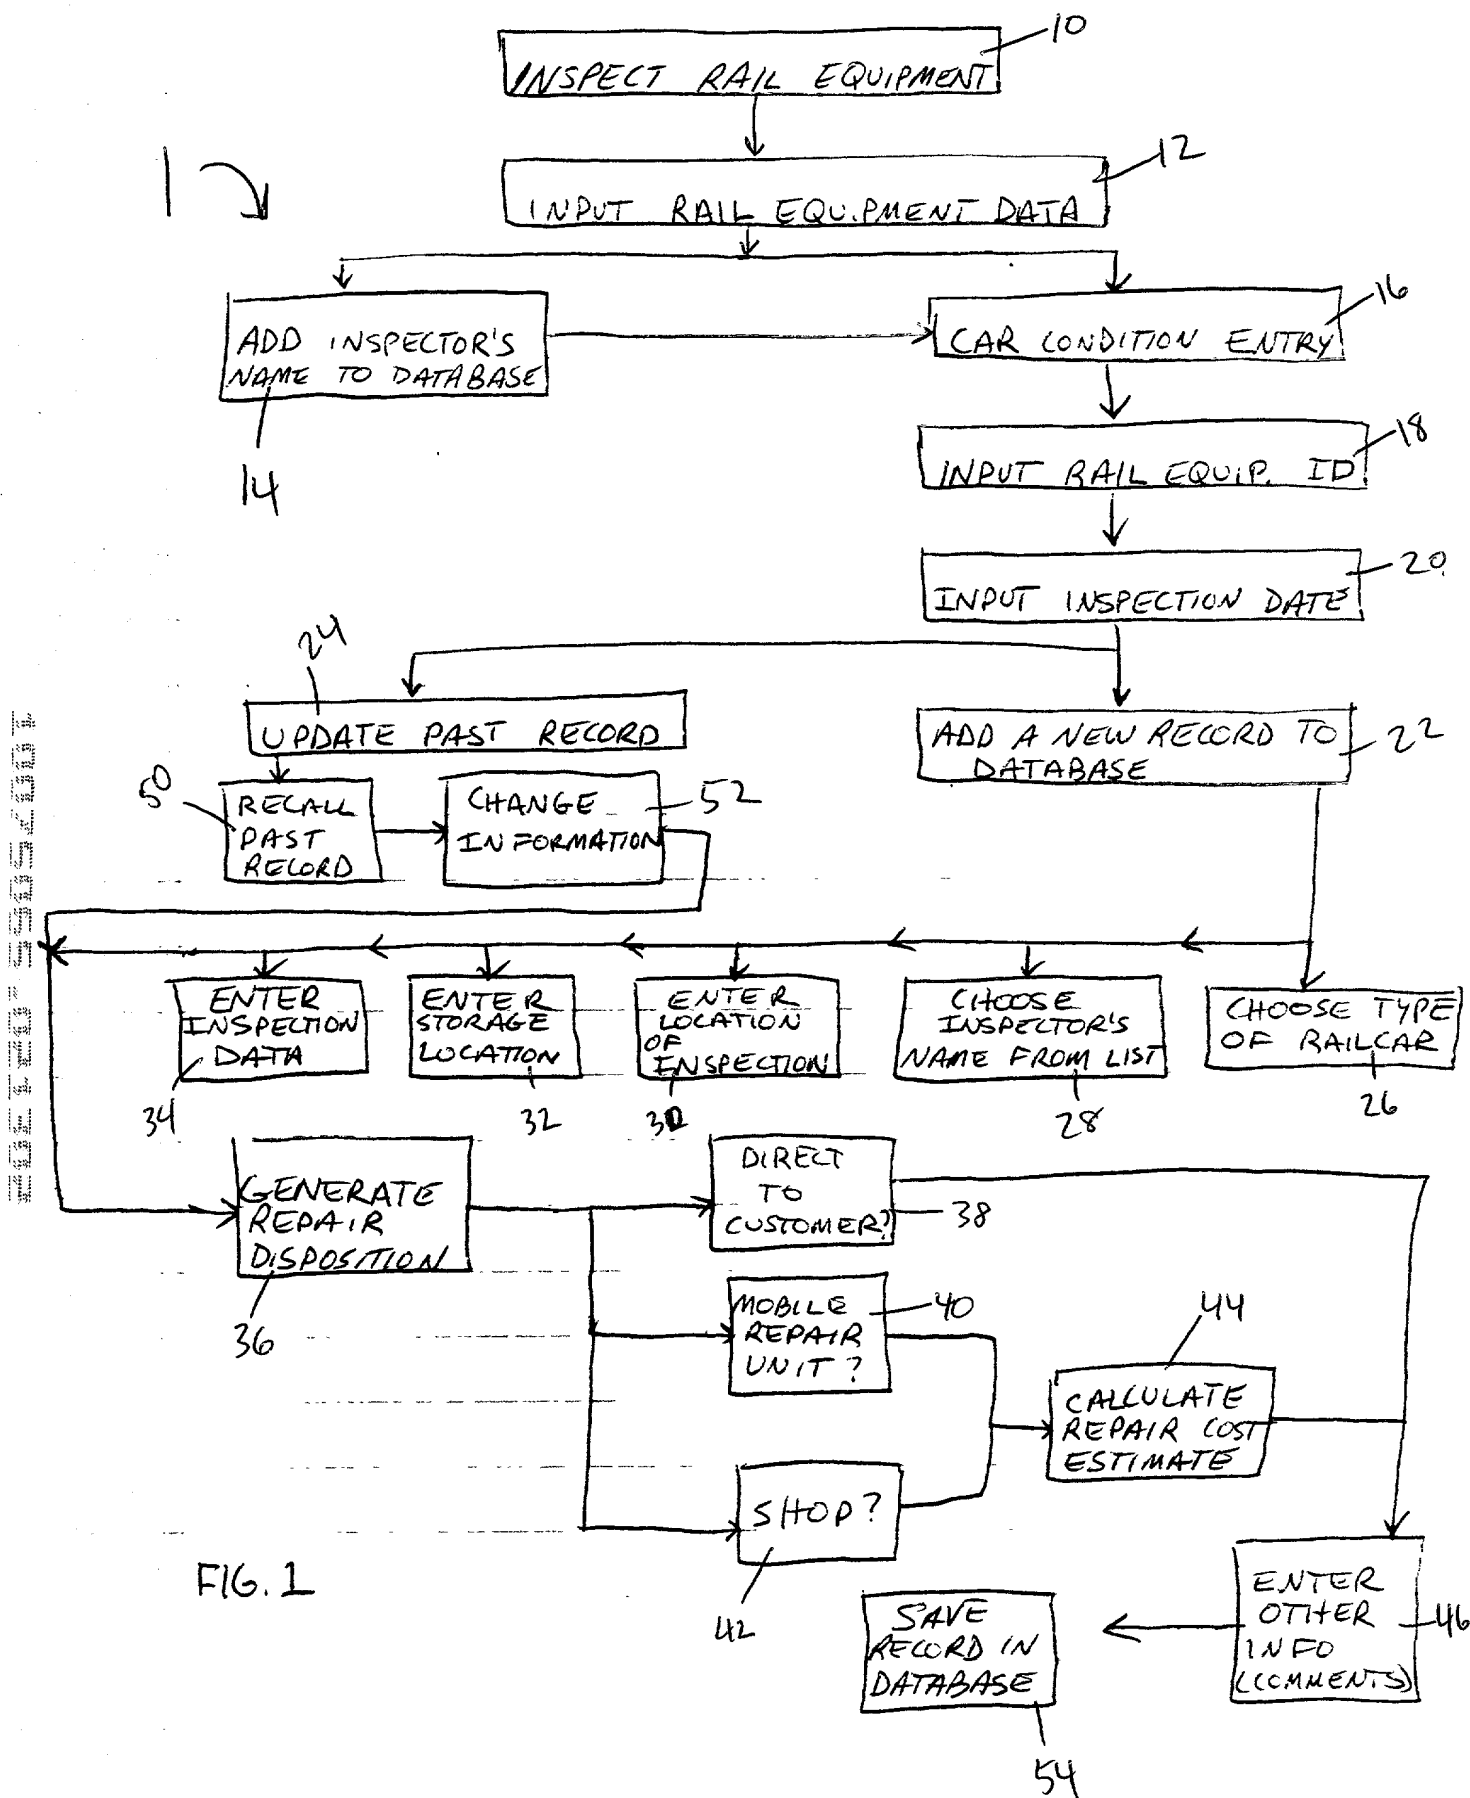 10
INSPECT RAIL EQUIPMENT
12
1
INPUT RAIL EQUIPMENT DATA
16
ADD INSPECTOR'S
NAME TO DATABASE
CAR CONDITION ENTRY
14
18
INPUT RAIL EQUIP. ID
20
INPUT INSPECTION DATE
24
UPDATE PAST RECORD
ADD A NEW RECORD TO
DATABASE
22
50
RECALL
PAST
RECORD
CHANGE
INFORMATION
52
ENTER
INSPECTION
DATA
ENTER
STORAGE
LOCATION
ENTER
LOCATION
OF
INSPECTION
CHOOSE
INSPECTOR'S
NAME FROM LIST
CHOOSE TYPE
OF RAILCAR
34
32
30
28
26
GENERATE
REPAIR
DISPOSITION
36
DIRECT
TO
CUSTOMER?
38
MOBILE
REPAIR
UNIT?
40
44
CALCULATE
REPAIR COST
ESTIMATE
SHOP?
42
FIG. 1
ENTER
OTHER
INFO
(COMMENTS)
46
SAVE
RECORD IN
DATABASE
54